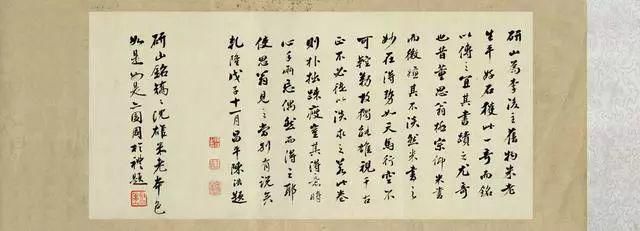 研山爲李後主舊物米老
生平好石獲此一奇而銘
以傳之宜其書蹟之尤奇
也昔董思翁極宗仰米書
而微嫌其不淡然米書之
妙在得勢如天馬行空不
可控勒故獨能雄視千古
正不必徒以淡求之若此卷
則朴拙疎瘦豈其得意時
心手兩忘偶然而得之耶
使思翁見之當別有說矣
乾隆戊子十一月昌平陳浩題
研山銘矯々沈雄米老本色
如是如是周於禮題